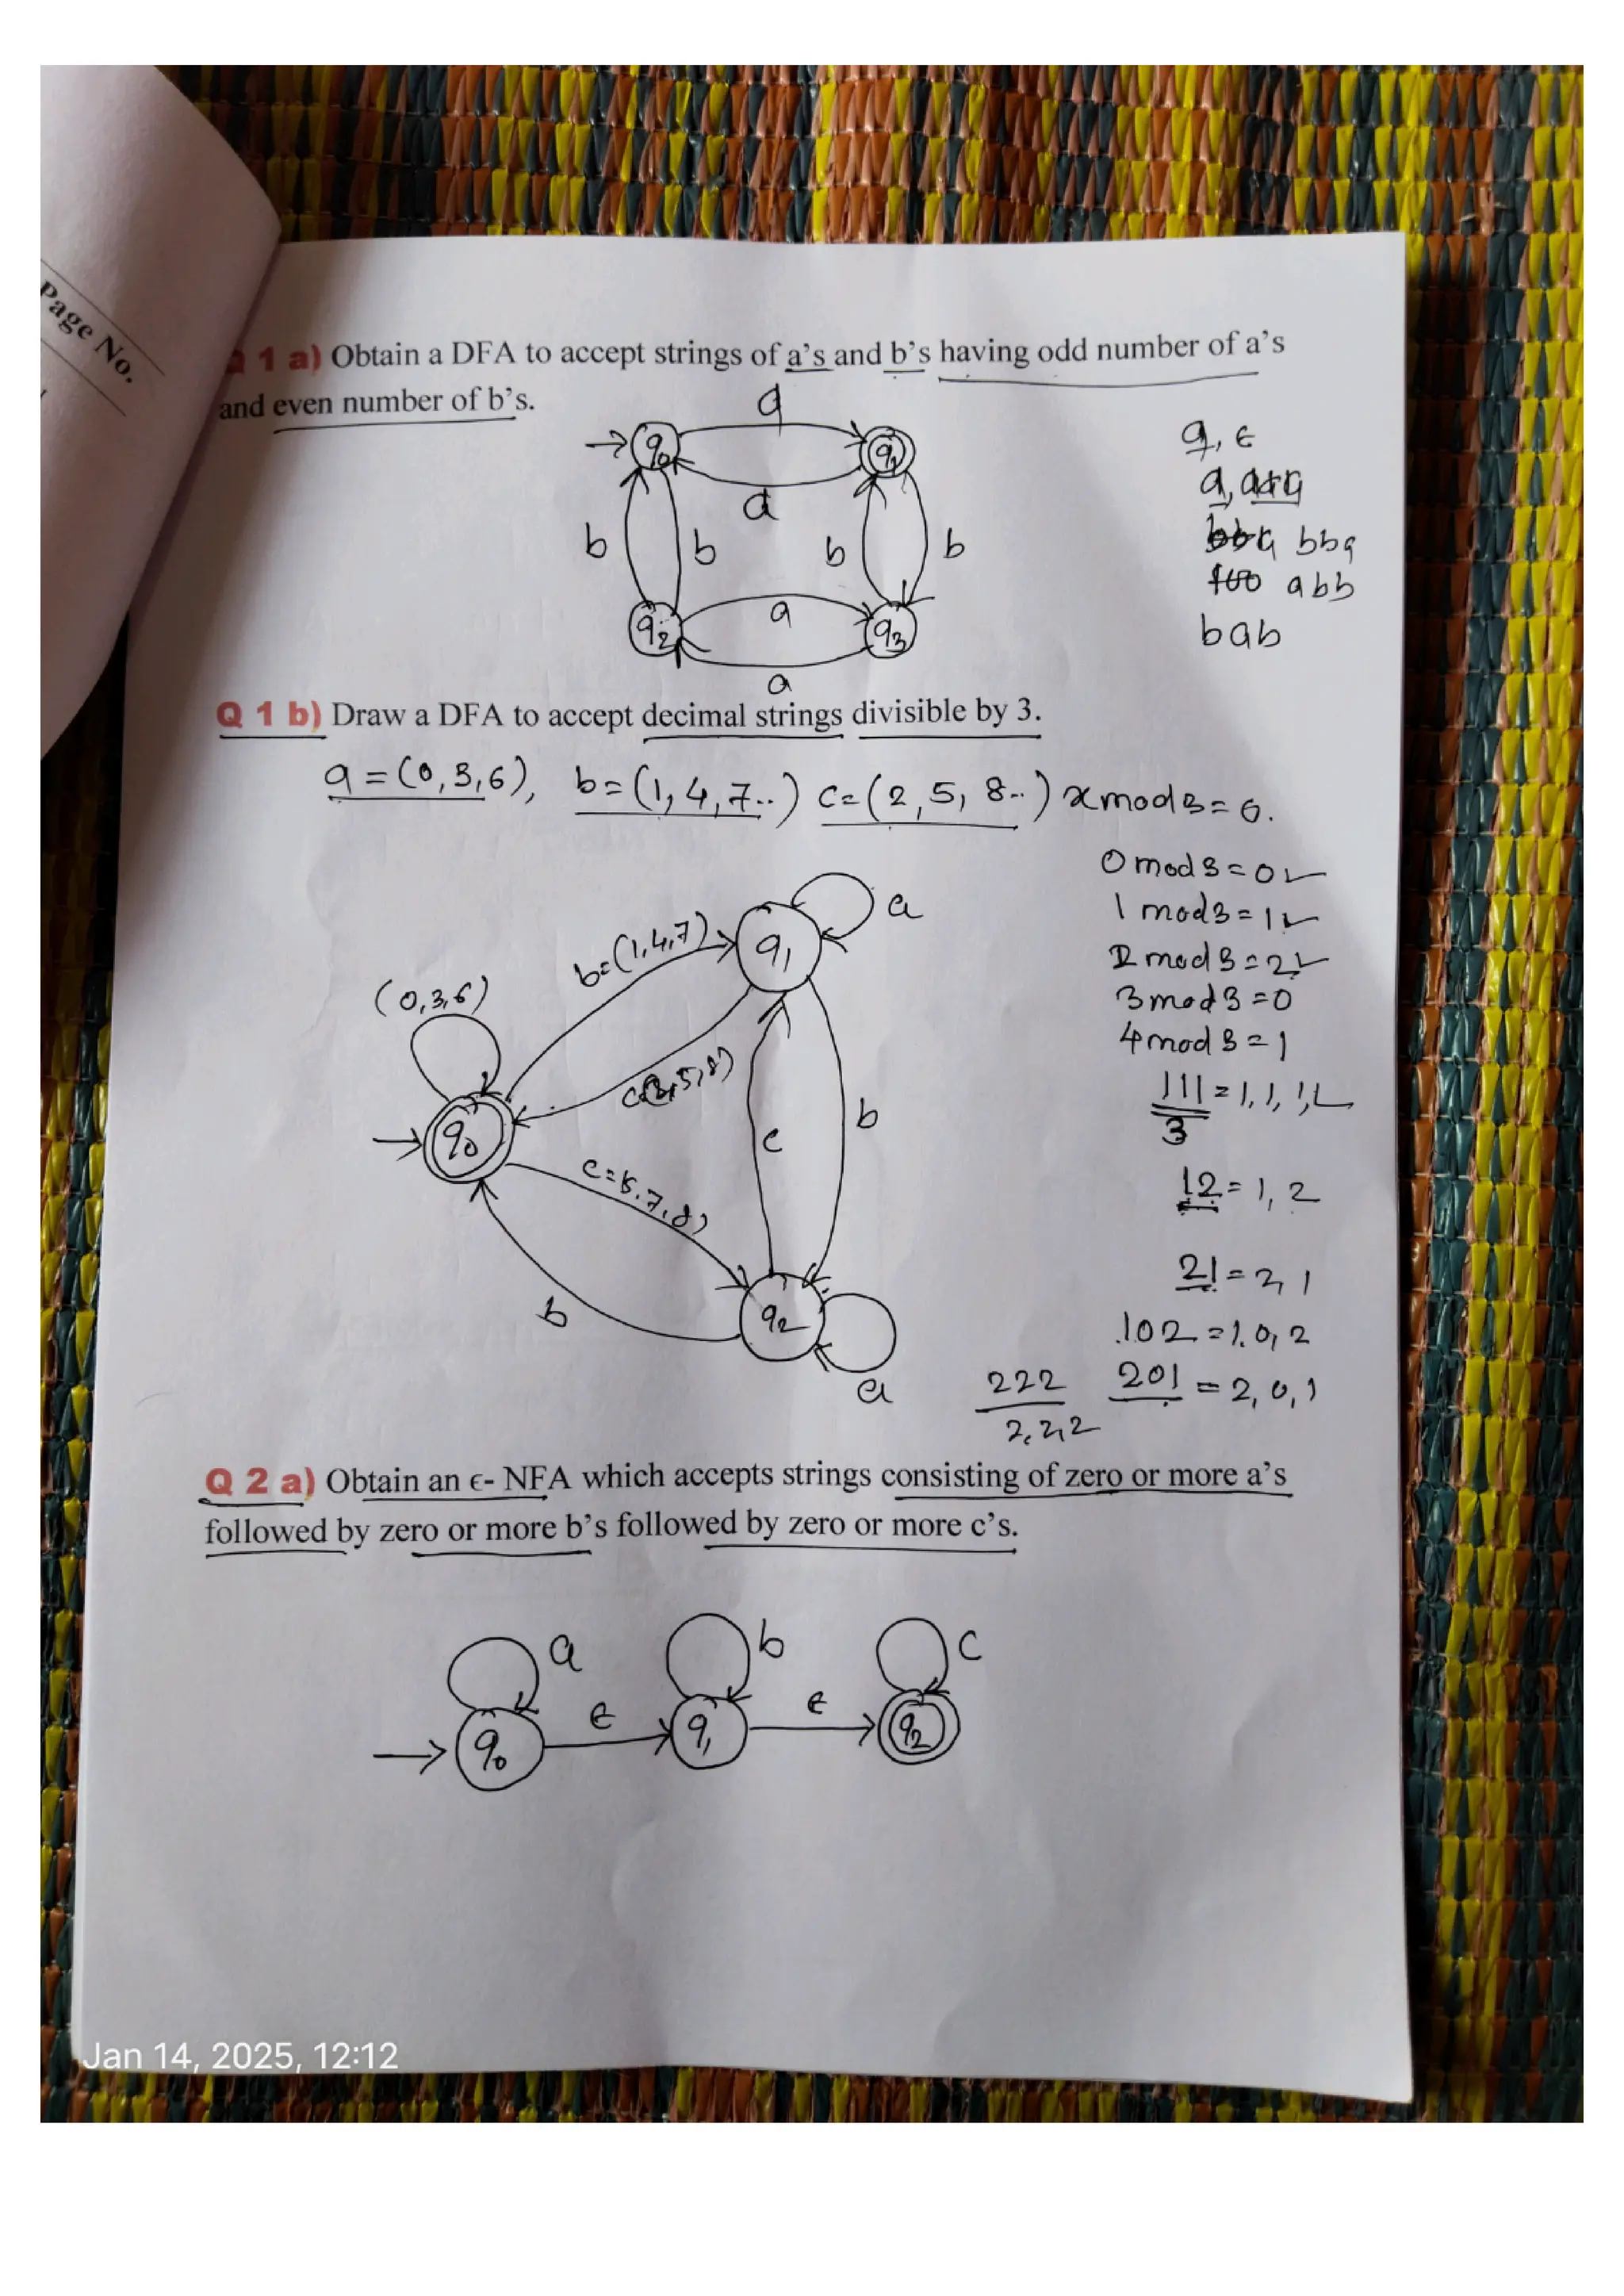 Page No.
1 a) Obtain a DFA to accept strings of a's and b's having odd number of a's
and even number of b's.
a
q0 q1
a
b b b b
a
q2 q3
a
q, ε
a,
bba
abb
bab
Q 1 b) Draw a DFA to accept decimal strings divisible by 3.
a = (0,3,6), b = (1,4,7..) c = (2,5,8..) x mod 3 = 0.
0 mod 3 = 0
1 mod 3 = 1
2 mod 3 = 2
3 mod 3 = 0
4 mod 3 = 1
111 = 1,1,1,
3
12 = 1, 2
21 = 2, 1
102 = 1.0, 2
222 201 = 2, 0, 1
2, 2, 2
a
b=(1,4,7) q1
(0,3,6)
b
q0 c
c=5.7.8)
b q2
a
Q 2 a) Obtain an ϵ- NFA which accepts strings consisting of zero or more a's
followed by zero or more b's followed by zero or more c's.
a b c
ε ε
q0 q1 q2
Jan 14, 2025, 12:12